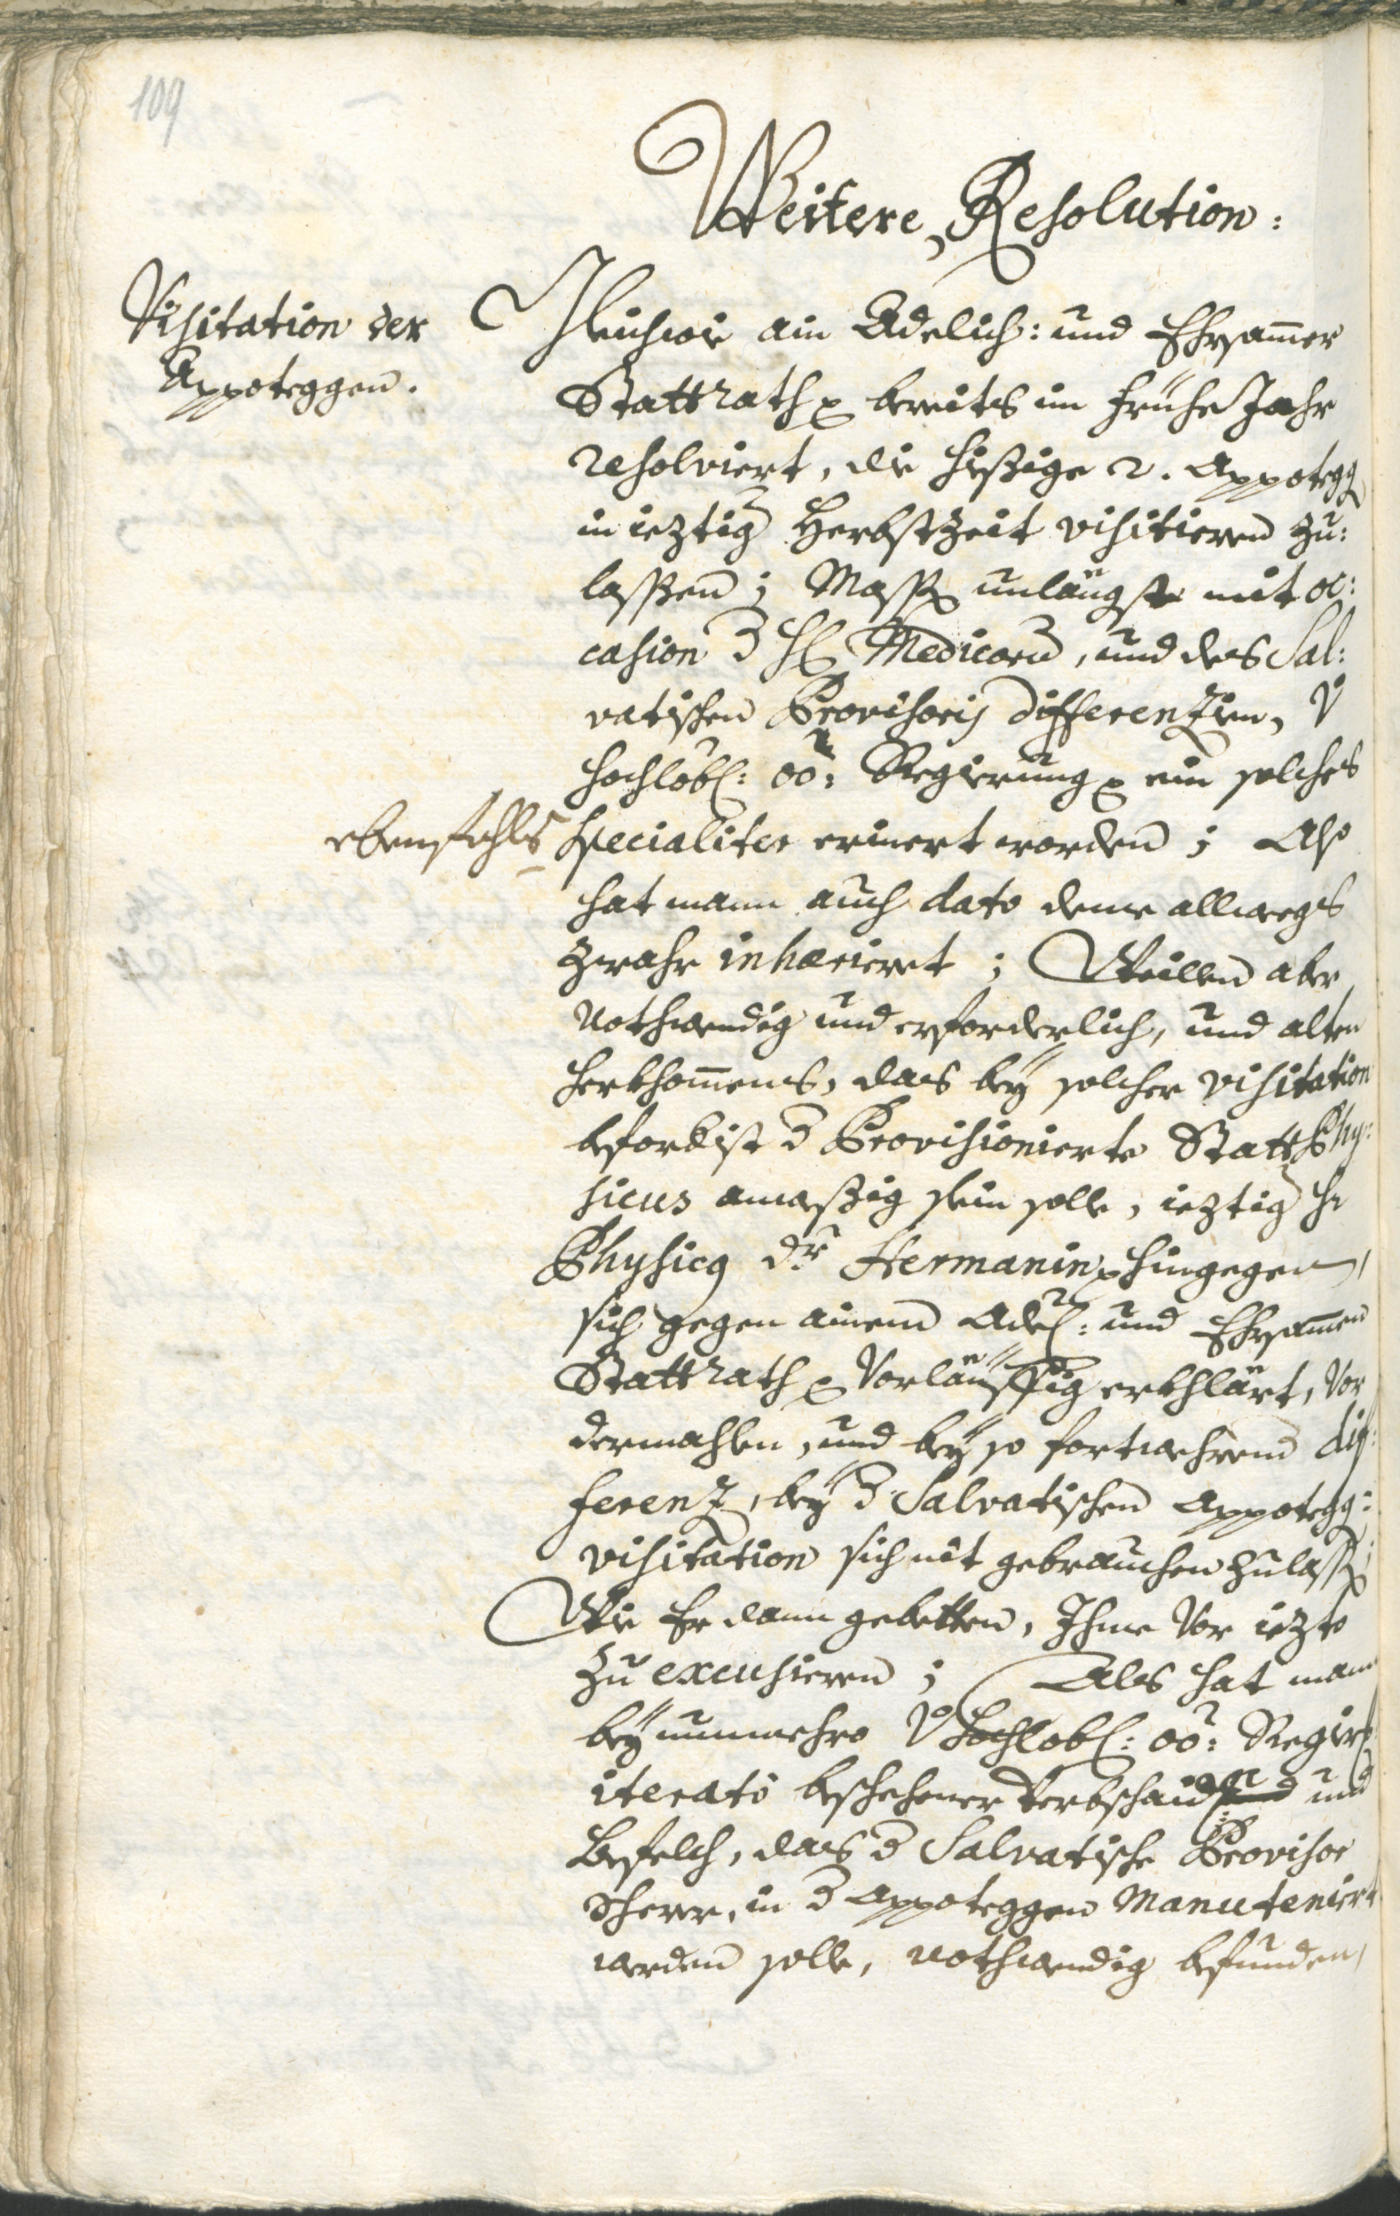 109
Weitere Resolution:
Visitation der
Appoteggen.
Gleichwie ain Adelich: und Ehrsammer
Stattrath bereits im früehe Jahr
resolviert, die hießige 2. Appotegg
in ieztig Herbstzeit visitieren zu:
lassen; Mass unlängst mit oc:
casion d H Medicorn, und des Sal:
vatischen Provisoris differenzien, V
hochlöbl: oö: Regierung ein solches
ebenfahls specialiter erinert worden; Also
hat mann auch dato deme allwegs
zwahr inhærieret; Weillen aber
nothwendig und erforderlich, und alten
herkhommens, das bey solcher visitation
d Provisionierte Statt Phy:
sicus anweßig sein solle, ieztig Hr
Physicq dr Hermanin hingegen,
sich gegen ainem Adel: und Ehrsammen
Stattrath Vorläuffig erkhlärt, Vor
dermahlen, und bey so fortwehrend dif:
ferenz, bey d Salvatischen Appotegg:
visitation sich nit gebrauchen zulass
Wie Er dann gebetten, Ihme Vor iezto
zu excusieren; Als hat mann
bey nunmehro V Hochlobl: oö: Regir
iterato beschehener Verbschaid und
Befelch, das d Salvatische Provisor
Scherer, in d Appoteggen Manuteniert
werden solle, nothwendig befunden,